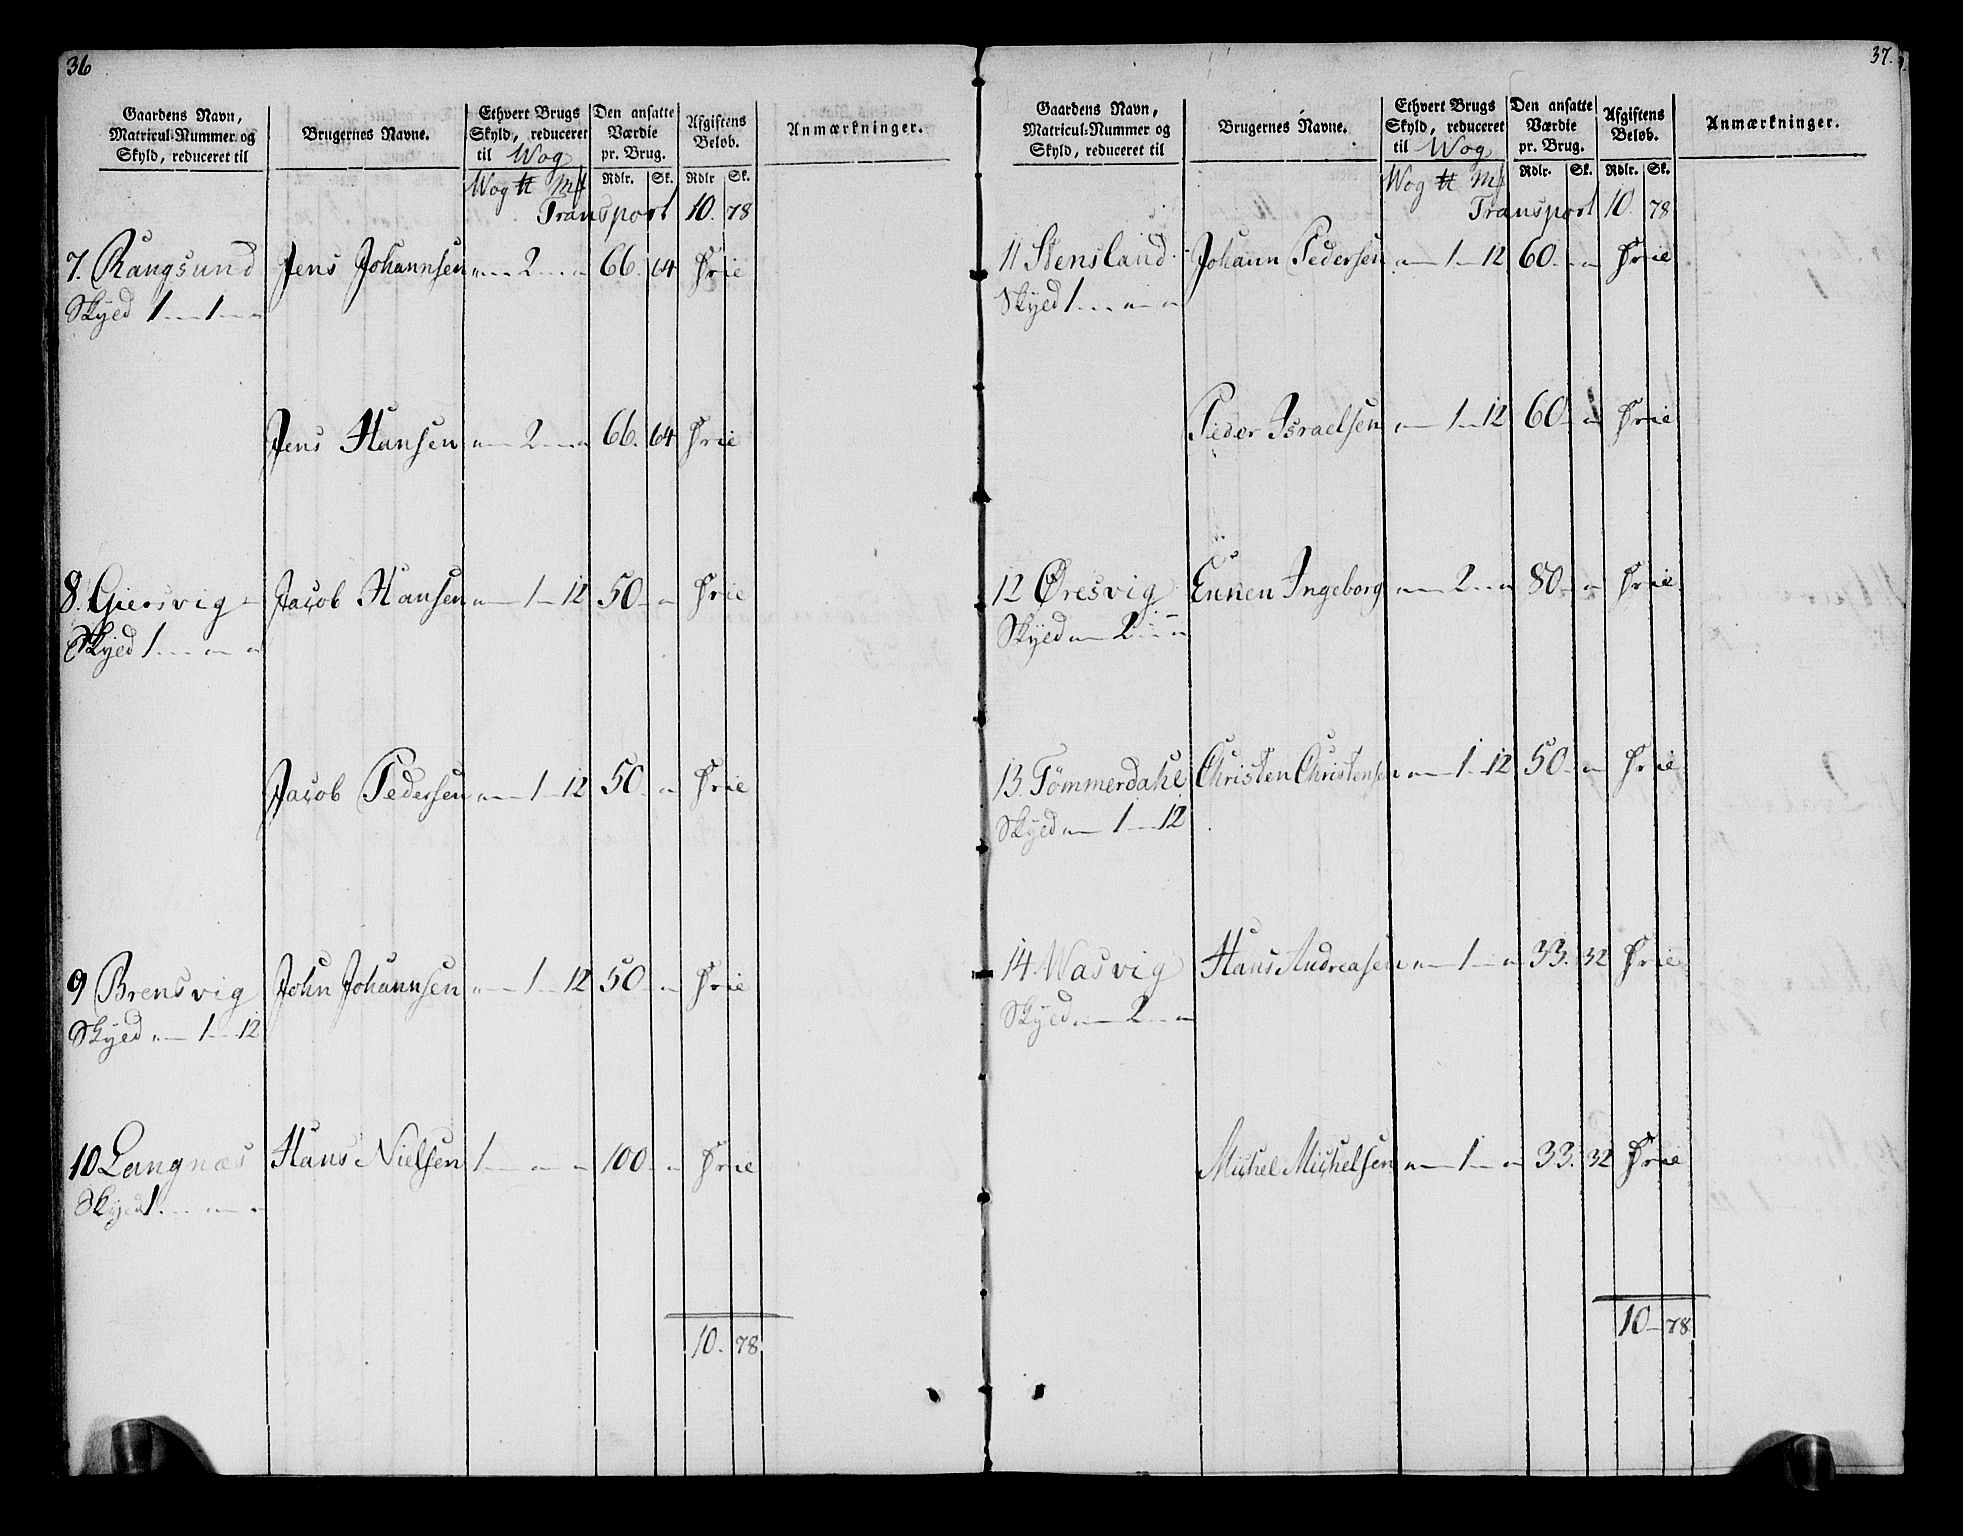 36
Gaardens Navn, Matricul-Nummer og Skyld, reduceret til
Brugernes Navne.
Ethvert Brugs Skyld, reduceret til Wog
Den ansatte Værdie pr. Brug.
Afgiftens Beløb.
Anmærkninger.
Wog ℔ Mk Rdlr. Sk. Rdlr Sk.
Transport 10. 78
7. Rangsund Jens Johannsen " — 2 — " 66. 64 Frie
Skyed 1 — 1 — "
Jens Hansen " — 2 — " 66. 64 Frie
8. Giersvig Jacob Hansen " — 1 — 12 50 — " Frie
Skyed 1 — " — "
Jacob Pedersen " — 1 — 12 50 — " Frie
9 Brensvig John Johannsen " — 1 — 12 50 — " Frie
Skyed " — 1 — 12
10 Langnæs Hans Nielsen 1 — " — " 100 — " Frie
Skyed 1 — " — "
10. 78.
37.
Gaardens Navn, Matricul-Nummer og Skyld, reduceret til
Brugernes Navne.
Ethvert Brugs Skyld, reduceret til Wog
Den ansatte Værdie pr. Brug.
Afgiftens Beløb.
Anmærkninger.
Wog ℔ Mk Rdlr. Sk. Rdlr. Sk.
Transport 10. 78
11 Stensland Johann Pedersen " — 1 — 12 60 — " Frie
Skyed 1 — " — "
Peder Israelsen " — 1 — 12 60 — " Frie
12 Øresvig Enken Ingeborg " — 2 — " 80 — " Frie
Skyed " — 2 — "
13. Tømmerdahl Christen Christensen " — 1 — 12 50 — " Frie
Skyed " — 1 — 12
14. Wasvig Hans Andreasen " — 1 — " 33. 32 Frie
Skyed " — 2 — "
Michel Michelsen " — 1 — " 33. 32 Frie
10 — 78.